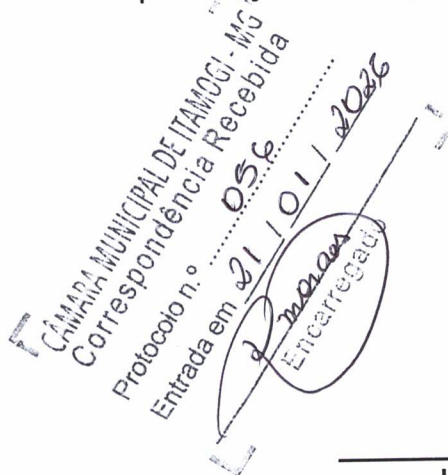 CÂMARA MUNICIPAL DE ITAMOGI - MG
Correspondência Recebida
Protocolo n.º ........ 056 ........
Entrada em 21 / 01 / 2026
moraes
Encarregado